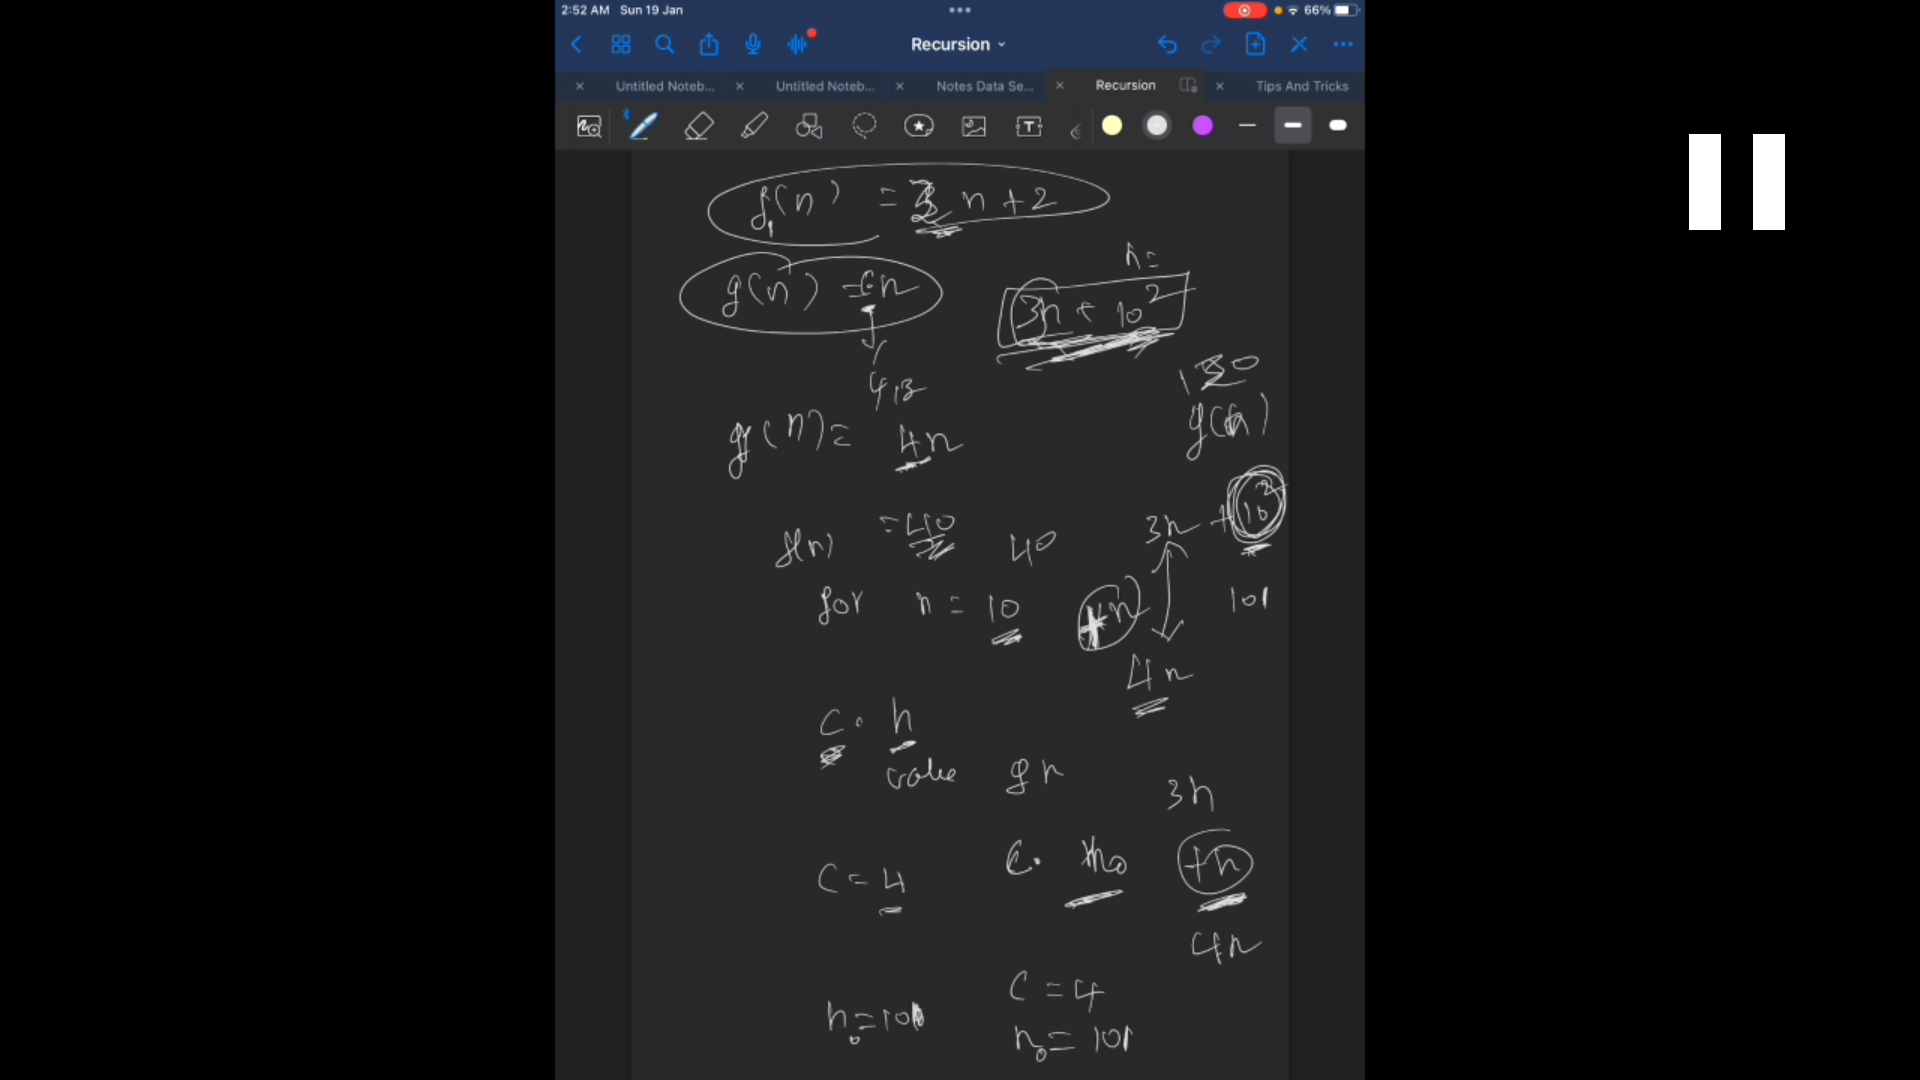 2:52 AM Sun 19 Jan
66%
Recursion
Untitled Noteb...
Untitled Noteb...
Notes Data Se...
Recursion
Tips And Tricks
f1(n) = 3n+2
g(n) = c·n
n=
3n + 10²
4,3
130
g(n) = 4n
g(n)
f(n) = 40
40
3n + 10²
for n = 10
+n
101
4n
c. n
value
g n
3n
c = 4
c. n₀
+n
4n
c = 4
n₀=101
n₀= 101